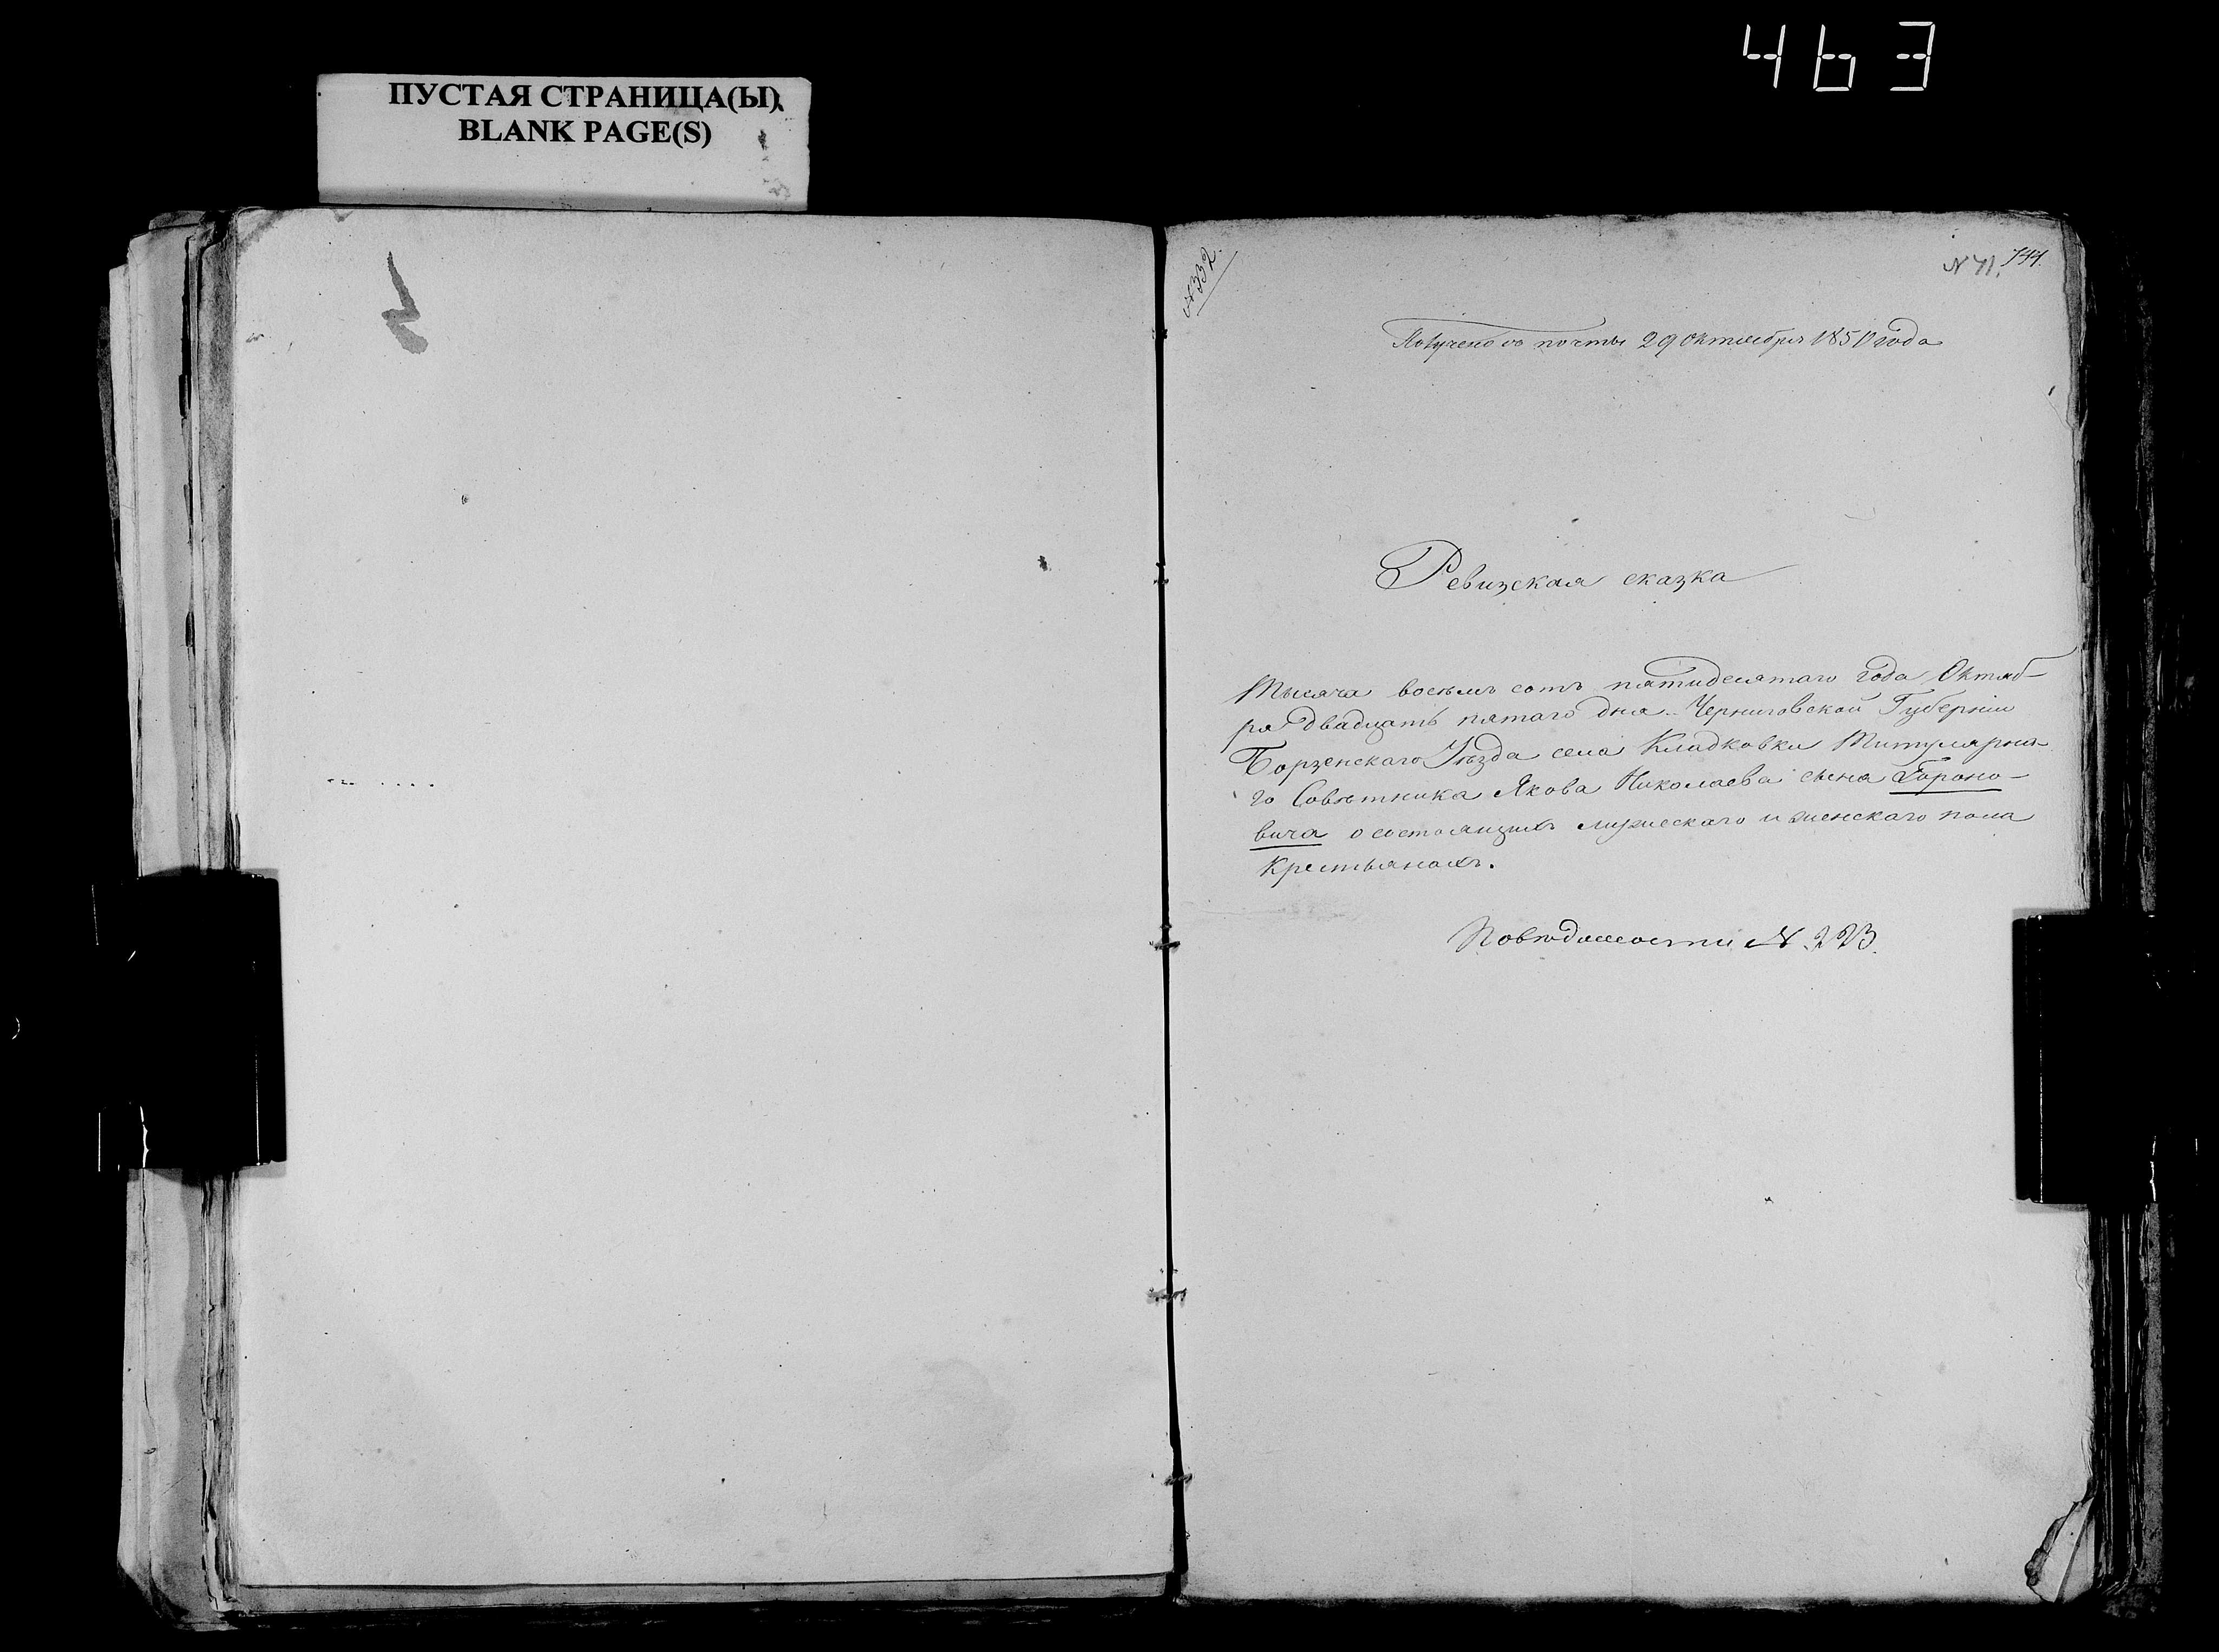 463
ПУСТАЯ СТРАНИЦА(Ы)
BLANK PAGE(S)
№332.
N 71. 744.
Получено съ почты 29 октября 1850 года
Ревизская сказка
Тысяча восемь сотъ пятидесятаго года Октяб-
ря двадцать пятаго дня Черниговской Губерніи
Борзенскаго Уѣзда села Кладковки Титулярна-
го Совѣтника Якова Николаева сына Гороно-
вича о состоящихъ мужескаго и женскаго пола
крестьянахъ.
По вѣдомости № 223.